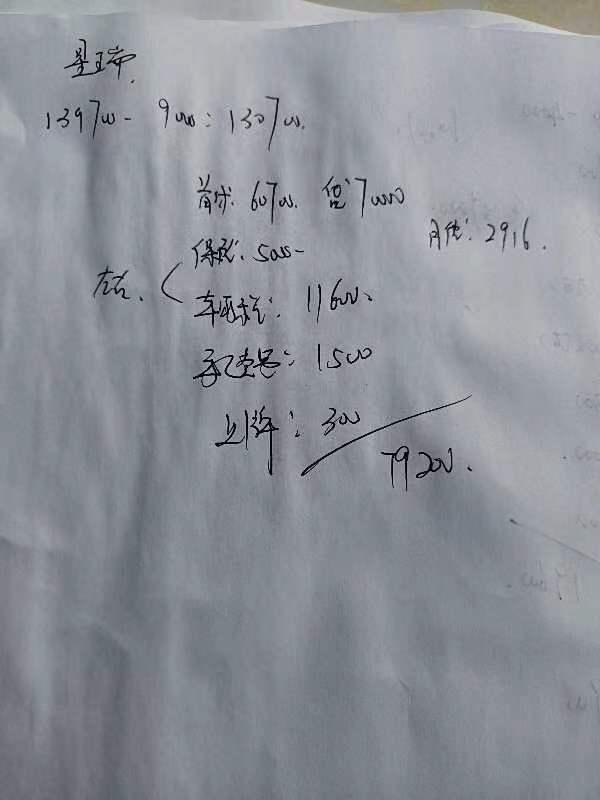 星瑞
139700 - 9000 = 130700.
首付: 60700. 贷: 70000
月供: 2916.
保险: 5000
左右.
车购税: 11600.
1500
上牌: 300
79200.